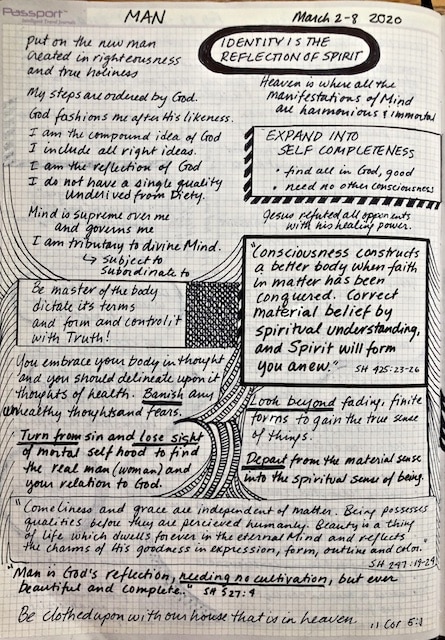 Passport
MAN
March 2-8 2020
put on the new man
created in righteousness
and true holiness
My steps are ordered by God.
God fashions me after His likeness.
I am the compound idea of God
I include all right ideas.
I am the reflection of God
I do not have a single quality
underived from Diety.
Mind is supreme over me
and governs me
I am tributary to divine Mind.
↳ subject to
Subordinate to
IDENTITY IS THE
REFLECTION OF SPIRIT
Heaven is where all the
manifestations of Mind
are harmonious & immortal
EXPAND INTO
SELF COMPLETENESS
• find all in God, good
• need no other consciousness
Jesus refuted all opponents
with his healing power.
"Consciousness constructs
a better body when faith
in matter has been
conquered. Correct
material belief by
spiritual understanding,
and Spirit will form
you anew." SH 425:23-26
Be master of the body
dictate its terms
and form and control it
with Truth!
You embrace your body in thought
and you should delineate upon it
thoughts of health. Banish any
unhealthy thoughts and fears.
Turn from sin and lose sight
of mortal selfhood to find
the real man (woman) and
your relation to God.
Look beyond fading, finite
forms to gain the true sense
of things.
Depart from the material sense
into the spiritual sense of being.
"Comeliness and grace are independent of matter. Being possesses
qualities before they are percieved humanly. Beauty is a thing
of life which dwells forever in the eternal Mind and reflects
the charms of His goodness in expression, form, outline and color."
SH 247:19-24
"Man is God's reflection, needing no cultivation, but ever
beautiful and complete." SH 527:4
Be clothed upon with our house that is in heaven
II Cor 5:1